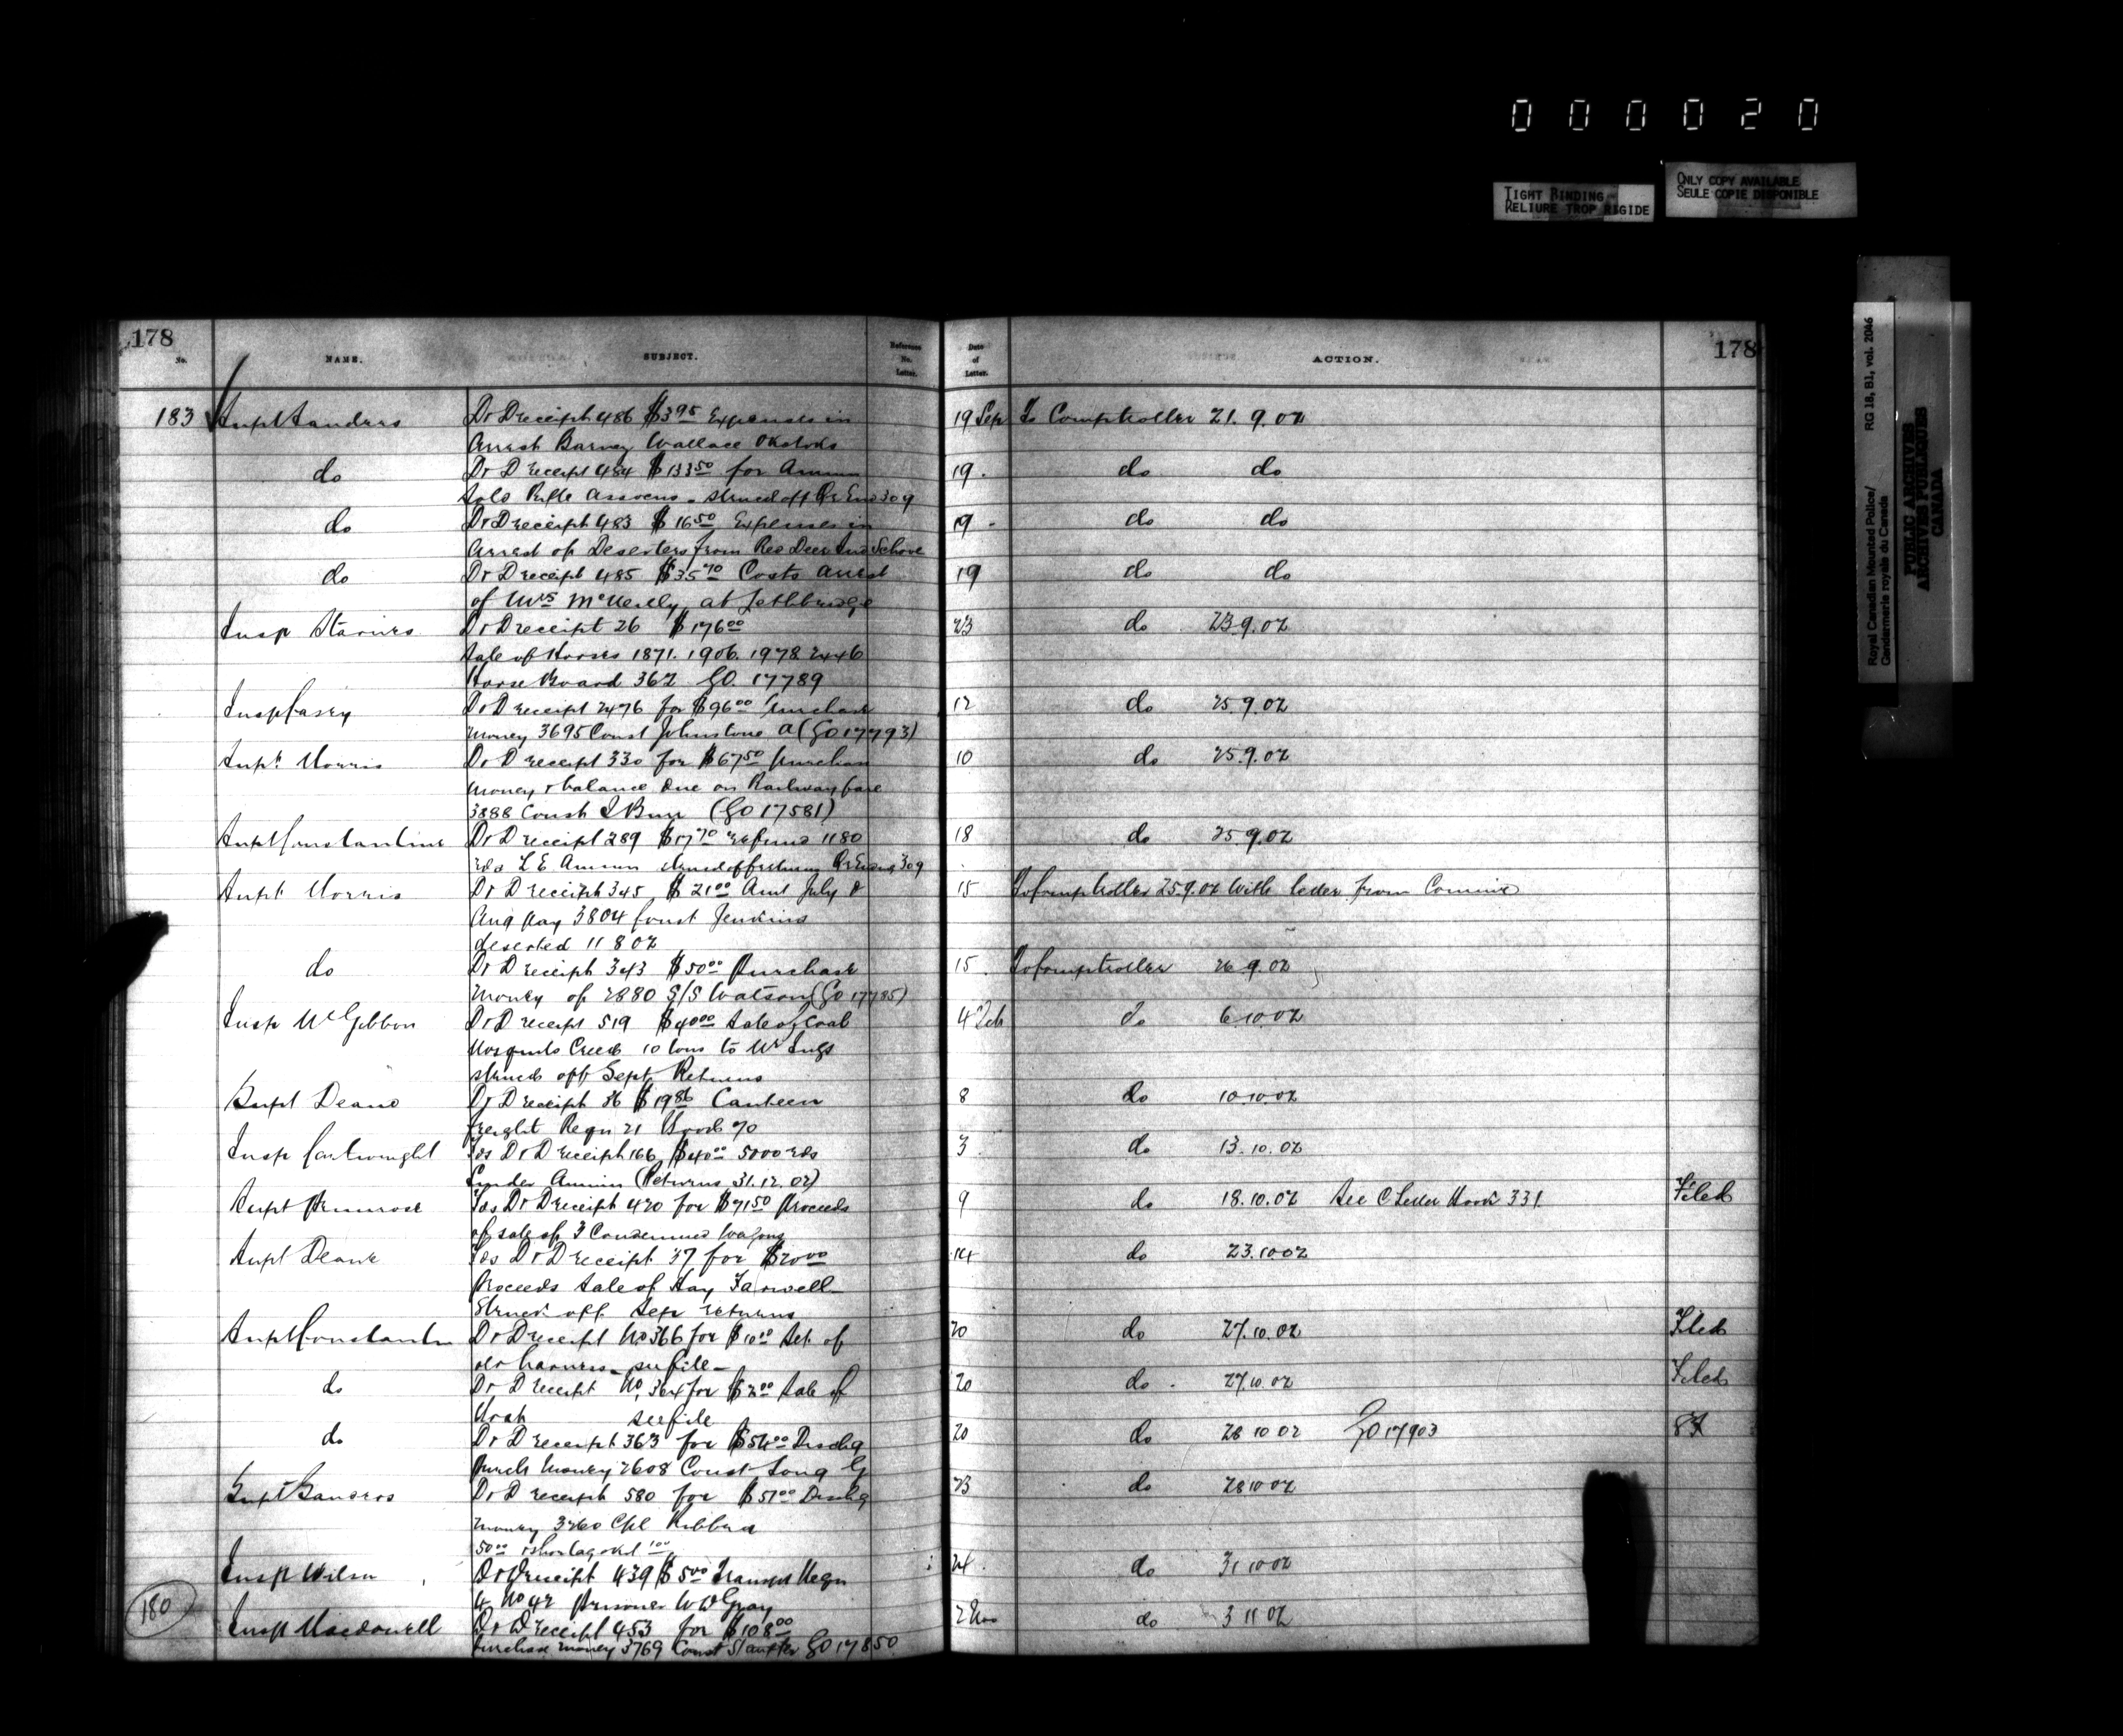 000020
TIGHT BINDING
RELIURE TROP RIGIDE
ONLY COPY AVAILABLE
SEULE COPIE DISPONIBLE
Royal Canadian Mounted Police/
Gendarmerie royale du Canada
RG 18, B1, vol. 2046
PUBLIC ARCHIVES
ARCHIVES PUBLIQUES
CANADA
178
No.
NAME.
SUBJECT.
Reference No. Letter.
Date of Letter.
ACTION.
178
183 Supt Sanders Dr D receipt 486 $3 95 Expenses in 19 Sep To Comptroller 21.9.02
Arrest Barney Wallace Okotoks
do Dr D receipt 484 $133 50 for Ammn 19 do do
Sold Rifle Assocns - struck off 309
do Dr D receipt 483 $16 50 Expenses in 19 do do
Arrest of Deserters from Red Deer Ind School
do Dr D receipt 485 $35 70 Costs arrest 19 do do
of Mrs at Lethbridge
Insp Starnes Dr D receipt 26 $176 00 23 do 23.9.02
Sale of Horses 1871. 1906. 1978 2446
Horse Board 362 GO. 17789
Insp Casey Dr D receipt 2476 for $96 00 Purchase 12 do 25.9.02
money 3695 Const Johnstone A (GO 17793)
Supt Morris Dr D receipt 330 for $67 50 purchase 10 do 25.9.02
money & balance due on Railway fare
3888 Const (GO 17581)
Supt Constantine Dr D receipt 289 $17 70 refund 1180 18 do 25.9.02
rds L E Ammn 309
Supt Morris Dr D receipt 345 $21 00 Amt July & 15 To Comptroller 25.9.02 with letter from Commr
Aug pay 3804 Const Jenkins
deserted 11 8 02
do Dr D receipt 343 $50 00 Purchase 15 To Comptroller 26.9.02
money of 2880 S/S Watson (GO 17785)
Insp McGibbon Dr D receipt 519 $40 00 Sale of Coal 4 do 6.10.02
Mosquito Creek 10 tons to Mr
struck off Sept Returns
Supt Deane Dr D receipt 36 $19 86 Canteen 8 do 10.10.02
freight Reqn 21 Book 70
Insp Cartwright Dr D receipt 166 $40 00 5000 rds 3 do 13.10.02
Ammn (Returns 31.12.02)
Supt Primrose Dr D receipt 420 for $71 50 Proceeds 9 do 18.10.02 See C Letter Book 331. Filed
of sale of 3 Condemned Wagons
Supt Deane Dr D receipt 37 for $20 00 14 do 23.10.02
Proceeds Sale of Hay Farwell
Struck off Sept returns
Supt Constantine Dr D receipt No 366 for $10 00 Set of 20 do 27.10.02 Filed
old harness - see file -
do Dr D receipt No 364 for $2 00 Sale of 20 do 27.10.02 Filed
see file
do Dr D receipt 363 for $54 00 Dischg 20 do 28 10 02 GO 17903
Purch money 2608 Const Long G
Supt Sanders Dr D receipt 580 for $51 00 Dischg 23 do 28 10 02
money 3260 Cpl Hibbard
50 00 & shortage 1 00
Insp Wilson Dr D receipt 439 $5 00 Transpt Reqn 24 do 31 10 02
No 42 prisoner W W Gray
180 Insp Macdonell Dr D receipt 453 for $108 00 2 Nov do 3 11 02
purchase money 3769 Const GO 17850